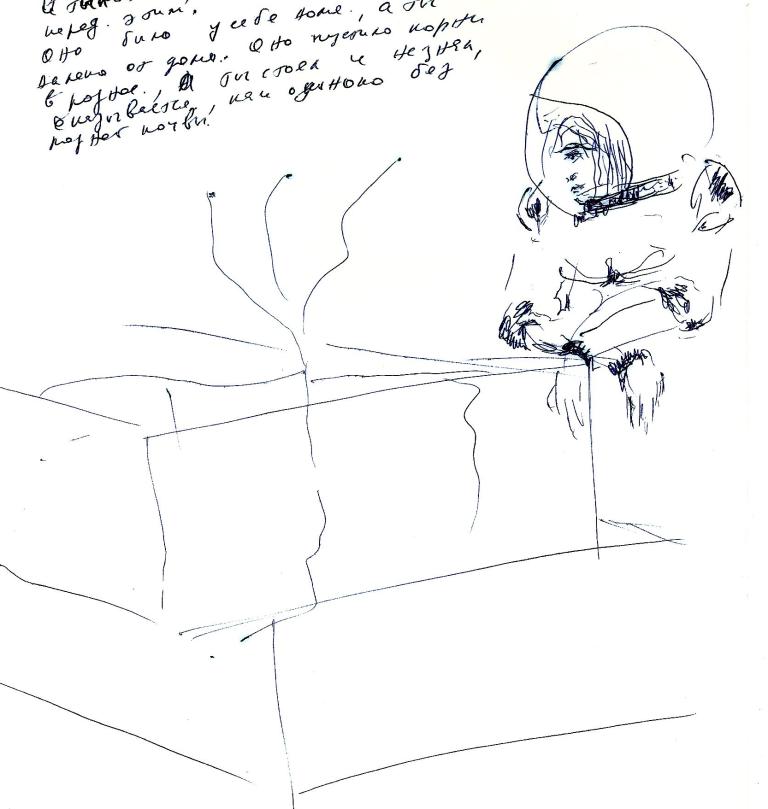 перед этим.
Оно было у себя дома, а ты
далеко от дома. Оно пустило корни
в родное, а ты стоял и не знал,
оказывается, как одиноко без
родной почвы.